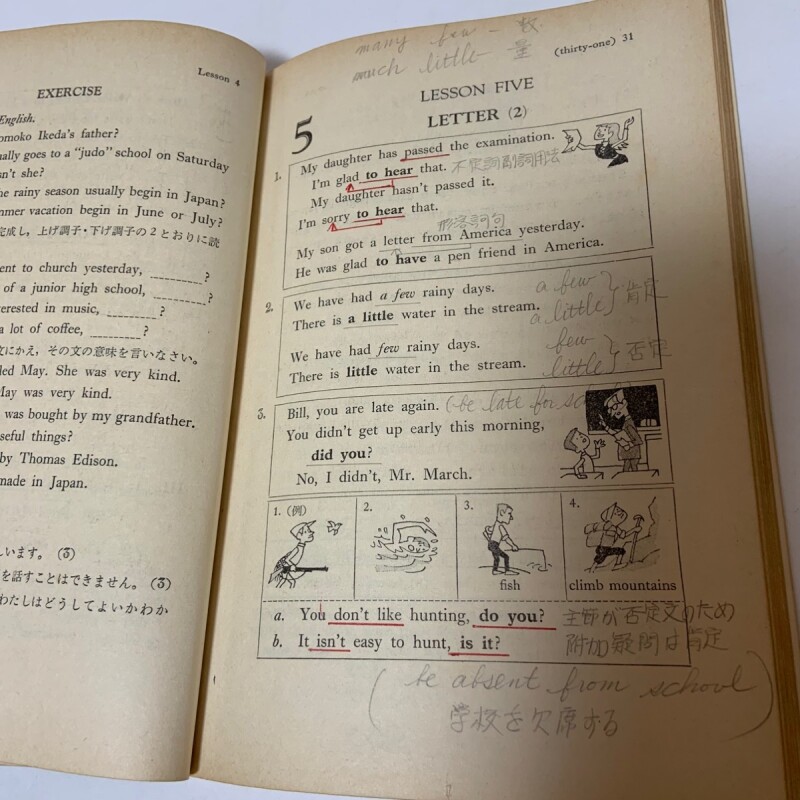 Lesson 4
EXERCISE
English.
omoko Ikeda's father?
ally goes to a "judo" school on Saturday
n't she?
he rainy season usually begin in Japan?
mmer vacation begin in June or July?
完成し,上げ調子・下げ調子の2とおりに読
ent to church yesterday, ?
of a junior high school, ?
terested in music, ?
a lot of coffee, ?
文にかえ,その文の意味を言いなさい。
led May. She was very kind.
May was very kind.
was bought by my grandfather.
seful things?
by Thomas Edison.
made in Japan.
います。(3)
を話すことはできません。(3)
わたしはどうしてよいかわか
many few - 数
much little 量
(thirty-one) 31
LESSON FIVE
5
LETTER (2)
1. My daughter has passed the examination.
I'm glad to hear that. 不定詞副詞用法
My daughter hasn't passed it.
I'm sorry to hear that.
形容詞句
My son got a letter from America yesterday.
He was glad to have a pen friend in America.
2. We have had a few rainy days. a few
There is a little water in the stream. a little 肯定
We have had few rainy days. few
There is little water in the stream. little 否定
3. Bill, you are late again. (be late for
You didn't get up early this morning,
did you?
No, I didn't, Mr. March.
1. (例) 2. 3. 4.
fish climb mountains
a. You don't like hunting, do you? 主節が否定文のため
b. It isn't easy to hunt, is it? 附加疑問は肯定
(be absent from school
学校を欠席する)